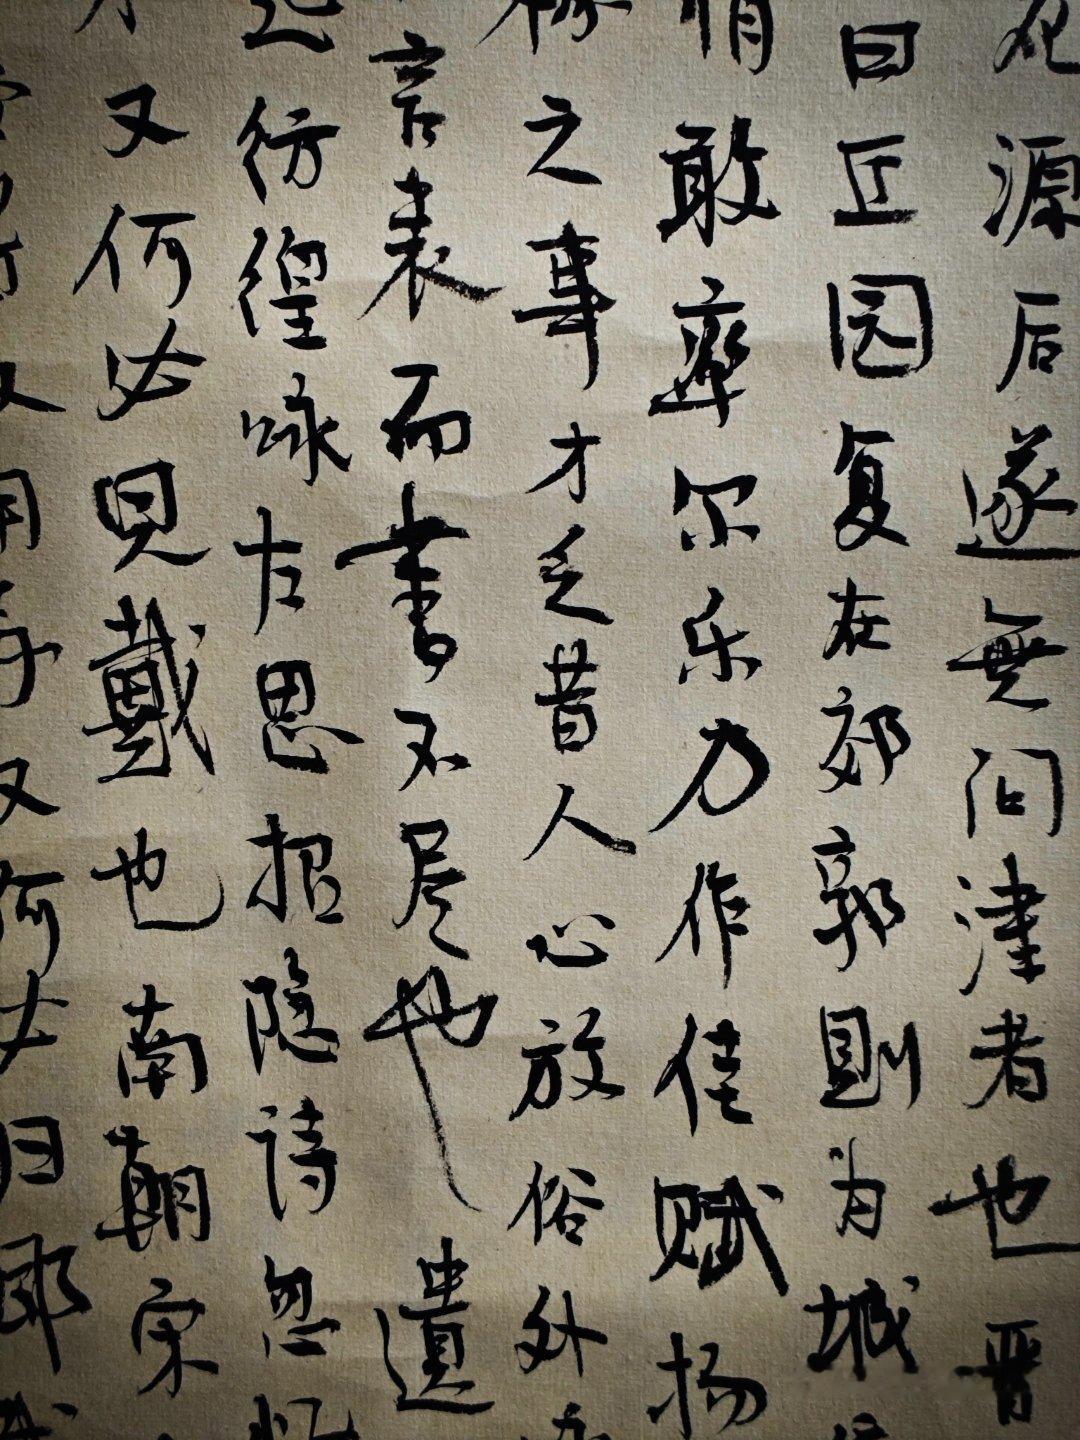 源后遂無问津者也晋
曰丘园复在郊郭则为城
情敢率尔乐力作佳赋扬
之事才乏昔人心放俗外
言表而書不尽也遺
彷徨咏古思招隐诗忽
又何必見戴也南朝宋
又何必曰郎